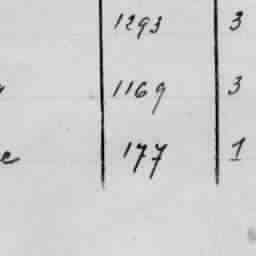 1293 3
1169 3
177 1